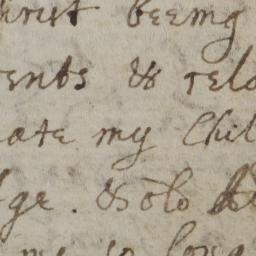 hrist beeing
ents & rela
ate my Chil
ge . & o to
me so long